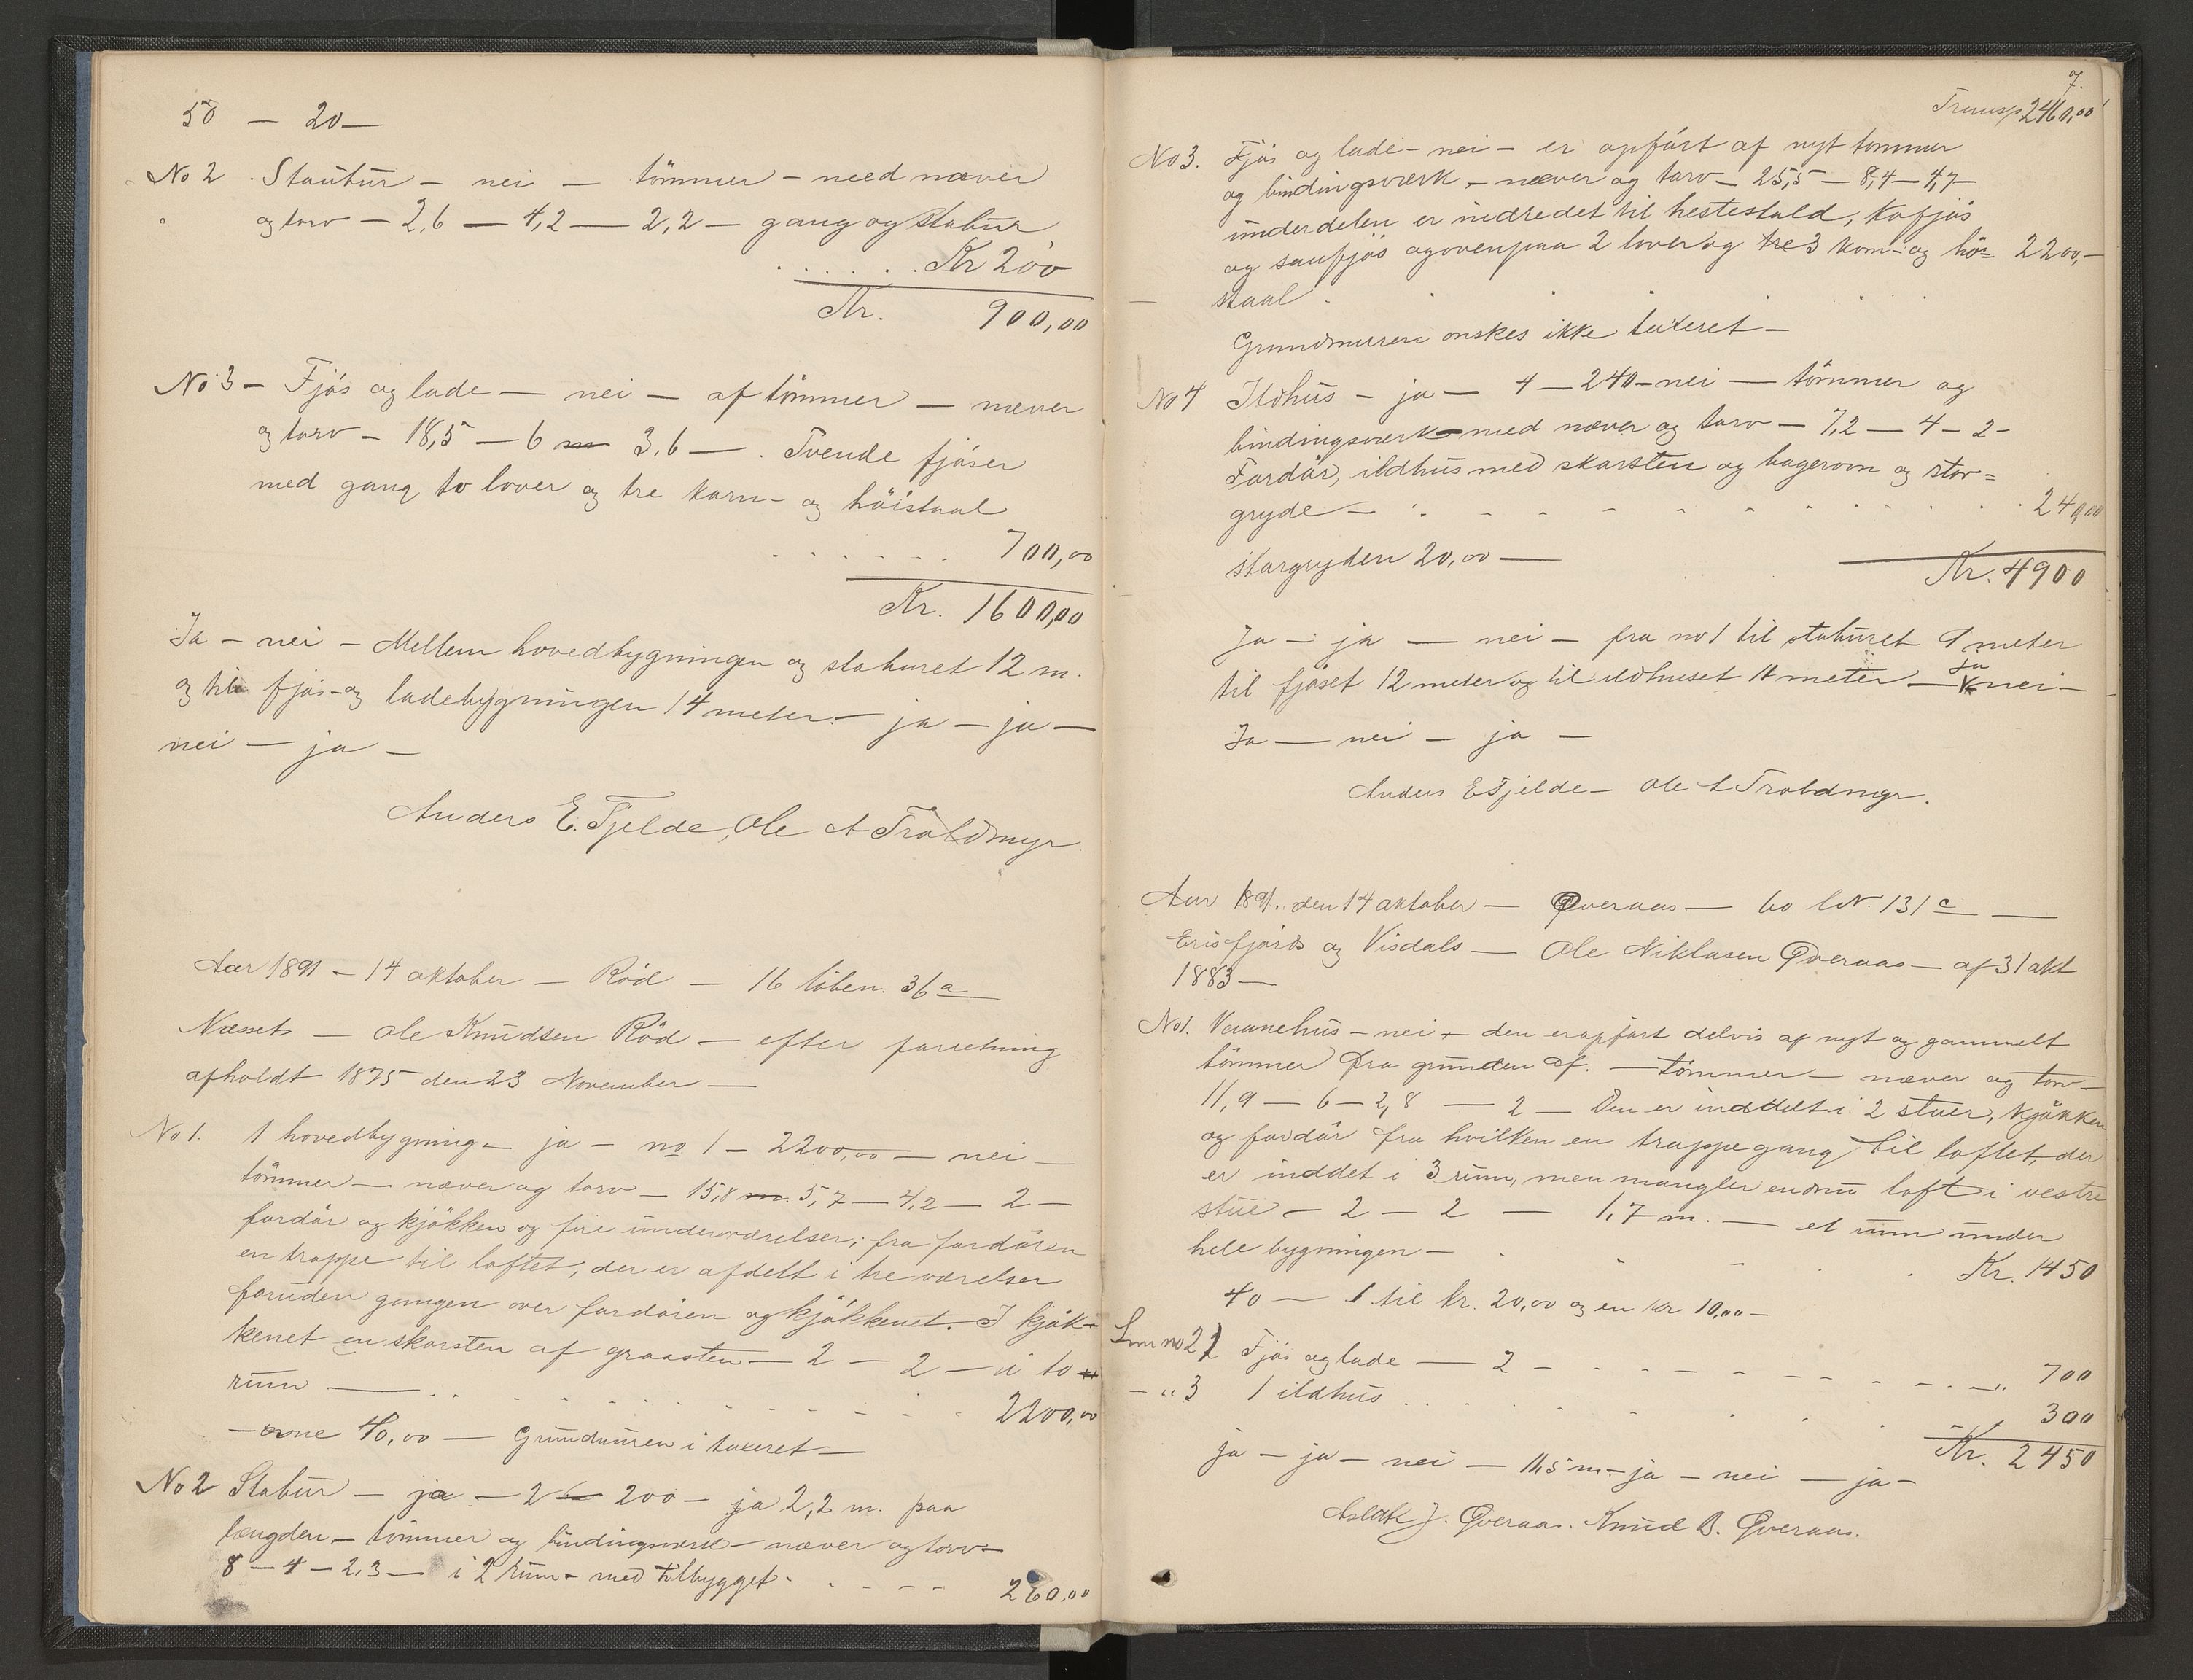 50 — 20 —
No 2 . Stabur — nei — tömmer — med næver
og torv — 2,6 — 4,2 — 2,2 — gang og stabur
. . . . . . Kr 200
Kr. 900,00
No 3 — Fjös og lade — nei — af tömmer — næver
og torv — 18,5 — 6 m 3,6 — . Tvende fjöser
med gang to lover og tre korn- og höistaal
. . . . . . 700,00
Kr. 1600,00
Ja — nei — Mellem hovedbygningen og staburet 12 m.
og til fjös- og ladebygningen 14 meter — ja — ja —
nei — ja —
Anders E. Fjelde, Ole A Troldmyr
Aar 1891 — 14 oktober — Röd — 16 löben. 36 a
Næsset — Ole Knudsen Röd — efter forretning
afholdt 1875 den 23 November —
No 1. 1 hovedbygning — ja — no 1 — 2200,00 — nei —
tömmer — næver og torv — 15,8 m. 5,7 — 4,2 — 2 —
fordör og kjökken og fire underværelser; fra fordören
en trappe til loftet, der er afdelt i tre værelser
foruden gangen over fordören og kjökkenet. I kjök-
kenet en skorsten af graasten — 2 — 2 — i to
rum — . . . . . . . . . . 2200,00
— ovne 40,00 — Grundmuren i taxeret —
No 2 Stabur — ja — 2 — 200 — ja 2,2 m. paa
længden — tömmer og bindingsverk — næver og torv —
8 — 4 — 2,3 — i 2 rum — med tilbygget . . . . 260,00
7.
Transp 2460,00
No 3. Fjös og lade — nei — er opfört af nyt tömmer
og bindingsværk — næver og torv — 25,5 — 8,4 — 4,7 —
underdelen er indredet til hestestald, kofjös
og saufjös og ovenpaa 2 lover og tre 3 korn- og hö= 2200,—
staal . . . . . .
Grundmuren önskes ikke taxeret —
No 4 Ildhus — ja — 4 — 240 — nei — tömmer og
bindingsværk med næver og torv — 7,2 — 4 — 2 —
Fordör, ildhus med skorsten og bagerovn og stor=
gryde — . . . . . . . . . . . 240,00
storgryden 20,00 —
Kr. 4900
Ja — ja — nei — fra no 1 til staburet 9 meter
til fjöset 12 meter og til ildhuset 11 meter — ja nei —
Ja — nei — ja —
Anders E Fjelde — Ole A Troldmyr.
Aar 1891. den 14 oktober — Qveraas — 60 l.N. 131 c —
Erisfjords og Visdals — Ole Niklasen Qveraas — af 31 okt
1883 —
No 1. Vaanehus — nei — den er opfört delvis af nyt og gammelt
tömmer fra grunden af. — tömmer — næver og torv —
11,9 — 6 — 2,8 — 2 — Den er inddelt i 2 stuer, kjökken
og fordör fra hvilken en trappegang til loftet, der
er inddet i 3 rum, men mangler endnu loft i vestre
stue — 2 — 2 — 1,7 m. — et rum under
hele bygningen — . . . . Kr. 1450
40 — 1 til kr. 20,00 og en kr 10,00 —
Som no 2) Fjös og lade — 2 — . . . . . . . . 700
— " 3 1 ildhus . . . . . . . . 300
Kr. 2450
ja — ja — nei — 11,5 m — ja — nei — ja —
Aslak J. Qveraas. Knud B. Qveraas.